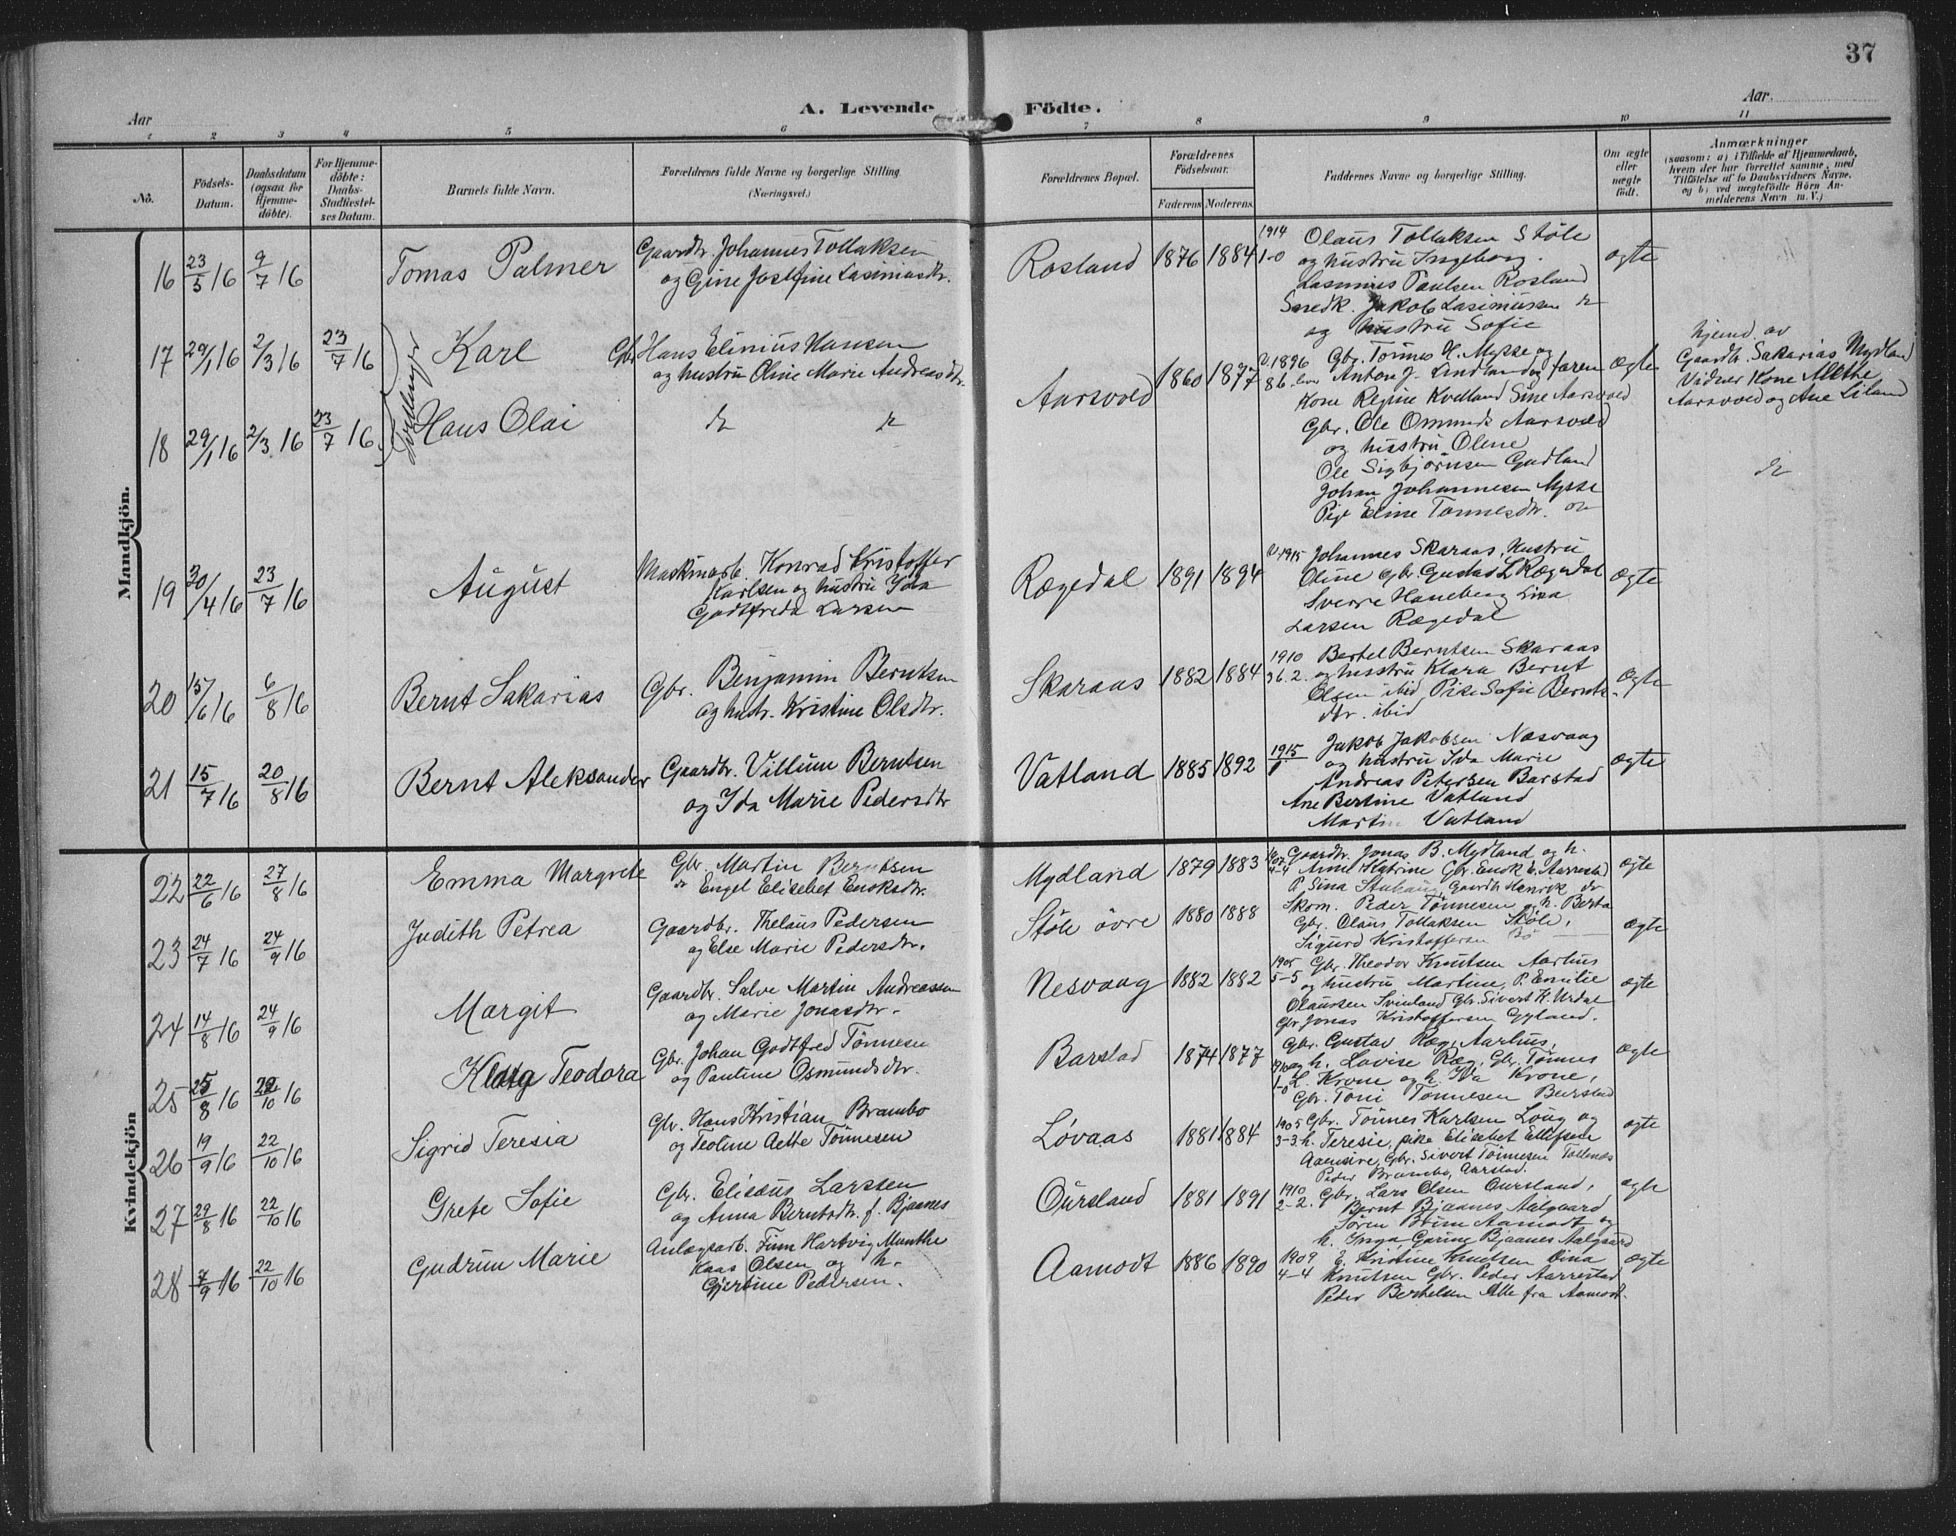 37
A. Levende Födte.
Aar
Aar.
1 2 3 4 5 6 7 8 9 10 11
No.
Födsels-Datum.
Daabsdatum (ogsaa for Hjemmedöbte).
For Hjemmedöbte: Daabs-Stadfæstelses Datum.
Barnets fulde Navn.
Forældrenes fulde Navne og borgerlige Stilling (Næringsvei.)
Forældrenes Bopæl.
Forældrenes Födselsaar.
Faderens Moderens.
Faddernes Navne og borgerlige Stilling.
Om ægte eller uægte födt.
Anmærkninger
(saasom: a) i Tilfælde af Hjemmedaab, hvem der har forrettet samme, med Tilföielse af to Daabsvidners Navne, og b) ved uægtefödte Börn Anmelderens Navn m. V.)
Mandkjön.
16 23/5 16 9/7 16 Tomas Palmer
Gaardbr. Johannes Tollaksen
og Gine Josefine Lasimusdtr.
Rosland 1876 1884 1914 1-0
Olaus Tollaksen Støle
og hustru Ingeborg.
Lasimus Paulsen Rosland
Snedk. Jakob Lasimussen do
og hustru Sofie
ægte
17 29/1 16 2/3 16 23/7 16 Tvillinger Karl
Gbr. Hans Elinius Hansen
og hustru Oline Marie Andreasdtr.
Aarsvold 1860 1897 v. 1896
Gbr. Tönnes H. Mysse og
Anton J. Lindland og faren
Kone Regine Kvelland Sine Aarsvold
ægte
hjemd. av
Gaardbr. Sakarias Mydland
Vidner Kone Alethe
Aarsvold og Ane Liland
18 29/1 16 2/3 16 23/7 16 Hans Olai
do do
Gbr. Ole Omunds Aarsvold
og hustru Olene
Ole Sigbjörnsen Gudland
Johan Johannesen Mysse
Pige Eline Tönnesdtr. do
do
19 30/4 16 23/7 16 August
Maskinarb. Konrad Kristoffer
Karlsen og hustru Ida
Godtfreda Larsen
Rægedal 1891 1894 v. 1915
Johannes Skaraas, Hustru
Oline Gbr. Gustad L Rægedal
Sverre Haneberg Lisa
Larsen Rægedal
ægte
20 15/6 16 6/8 16 Bernt Sakarias
Gbr. Benjamin Berntsen
og hustr. Kristine Olsdtr.
Skaraas 1882 1884 1910
Bertel Berntsen Skaraas
og hustru Klara Bernt
Olsen ibid Pike Sofie Bernts.
dtr. ibid
ægte
21 15/7 16 20/8 16 Bernt Aleksander
Gaardbr. Villum Berntsen
og Ida Marie Pedersdtr
Vatland 1885 1892 1915
Jakob Jakobsen Nesvaag
og hustru Ida Marie
Andreas Petersen Barstad
Ane Bertine Vatland
Martin Vatland
ægte
Kvindekjön
22 22/6 16 27/8 16 Emma Margrete
Gbr. Martin Berntsen
& Engel Elisebet Enoksdtr.
Mydland 1879 1883 1907 4-4
Gaardbr. Jonas B. Mydland og h.
Anne Katrine Gbr. Enok E. Aarrestad
P. Sina Gaardb. Henrik do
ægte
23 24/7 16 24/9 16 Judith Petrea
Gaardbr. Thelaus Pedersen
og Else Marie Pedersdtr.
Støle øvre 1880 1888
Skom. Peder Tönnesen og h. Berta
Gbr. Olaus Tollaksen Støle,
Sigurd Kristoffersen Bø
ægte
24 14/8 16 24/9 16 Margit
Gaardbr. Salve Martin Andreassen
og Marie Jonasdtr.
Nesvaag 1882 1882 1905 5-5
Gbr. Theodor Knutsen Aarhus
og hustru Martine, P. Emilie
Olaussen Svinland Gbr. Sivert K. Urdal
Gbr Jonas Kristoffersen Gyland.
ægte
25 25/8 16 22/10 16 Teodora
Gbr. Johan Godtfred Tönnesen
og Pauline Osmundsdtr.
Barstad 1874 1877 1-0
Gbr. Gustav Ræg, Aarhus,
og h. Lovise Ræg, Gbr. Tönnes
L. Krone og h. Ida Krone,
Gbr. Toni Tönnesen Barstad
ægte
26 19/9 16 22/10 16 Sigrid Teresia
Gbr. Hans Kristian Brambo
og Teoline Aette Tönnesen
Løvaas 1881 1884 1905 3-3
Gbr. Tönnes Karlsen Løvg og
h. Teresie, pike Elisebet Ellefsen
Aaensire, Gbr. Sivert Tönnesen Tollenæs
Peder Brambo, Aarstad.
ægte
27 29/8 16 22/10 16 Grete Sofie
Gbr. Elisæus Larssen
og Anna Berntsdtr. f. Bjaanes
Oursland 1881 1891 1910 2-2.
Gbr. Lars Olsen Oursland,
Bernt Bjaanes Aalgaard
Sören Böim Aamodt og
h. Inga Gurine Bjaanes Aalgaard
ægte
28 7/9 16 22/10 16 Gudrun Marie
Anlægsarb. Finn Hartvig Munthe
Kaas Olsen og h.
Gjertine Pedersen.
Aamodt 1886 1890 1909 4-4
E. Kristine Knutsen Dina
Knutsen Gbr. Peder Aarrestad
Peder Berthelsen Alle fra Aamodt.
ægte